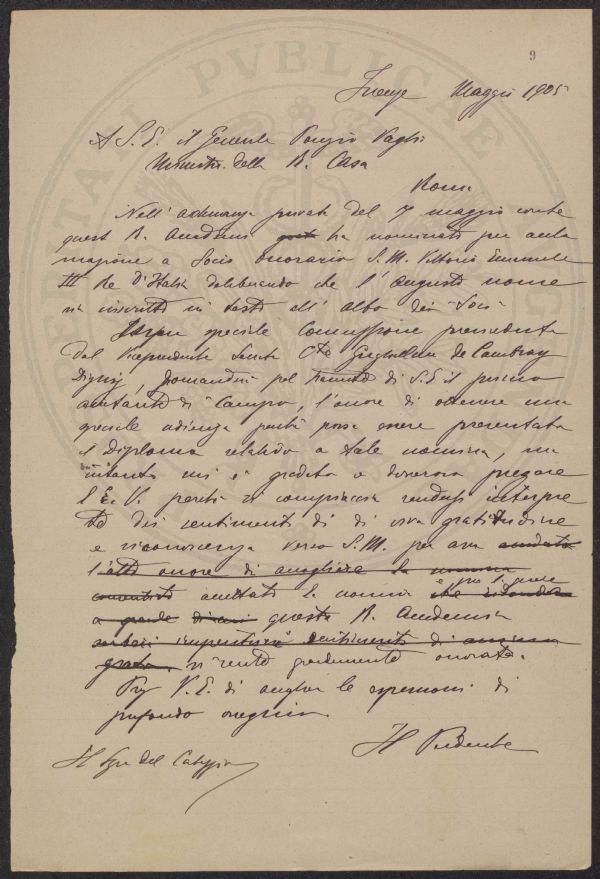 9
Firenze Maggio 1905
A S. E. il Generale Ponzio Vaglia
Ministro della R. Casa
Roma
Nell' adunanza privata del 7 maggio corrente
quest R. Accademia ha nominato per accla
mazione a Socio onorario S. M. Vittorio Emanuele
III Re d'Italia deliberando che l' augusto nome
sia inscritto in testa all' albo dei Soci
speciale Commissione presieduta
dal Vicepresidente Conte Guglielmo de Cambray
Digny, domanderà pel tramite di S. E. il primo
aiutante di Campo, l'onore di ottenere una
speciale udienza perchè possa essere presentato
il Diploma relativo a tale nomina, ma
intanto mi è gradito e doveroso pregare
l' E. V. perchè si compiaccia rendersi interpre
te dei sentimenti di di viva gratitudine
e riconoscenza verso S. M. per aver
l'alto onore di accogliere la nomina
accettato la nomina per la quale
questa R. Accademia
imperituri sentimenti di
si sente grandemente onorata.
Prego V. E. di accoglier le espressioni di
profondo ossequio
Il Presidente